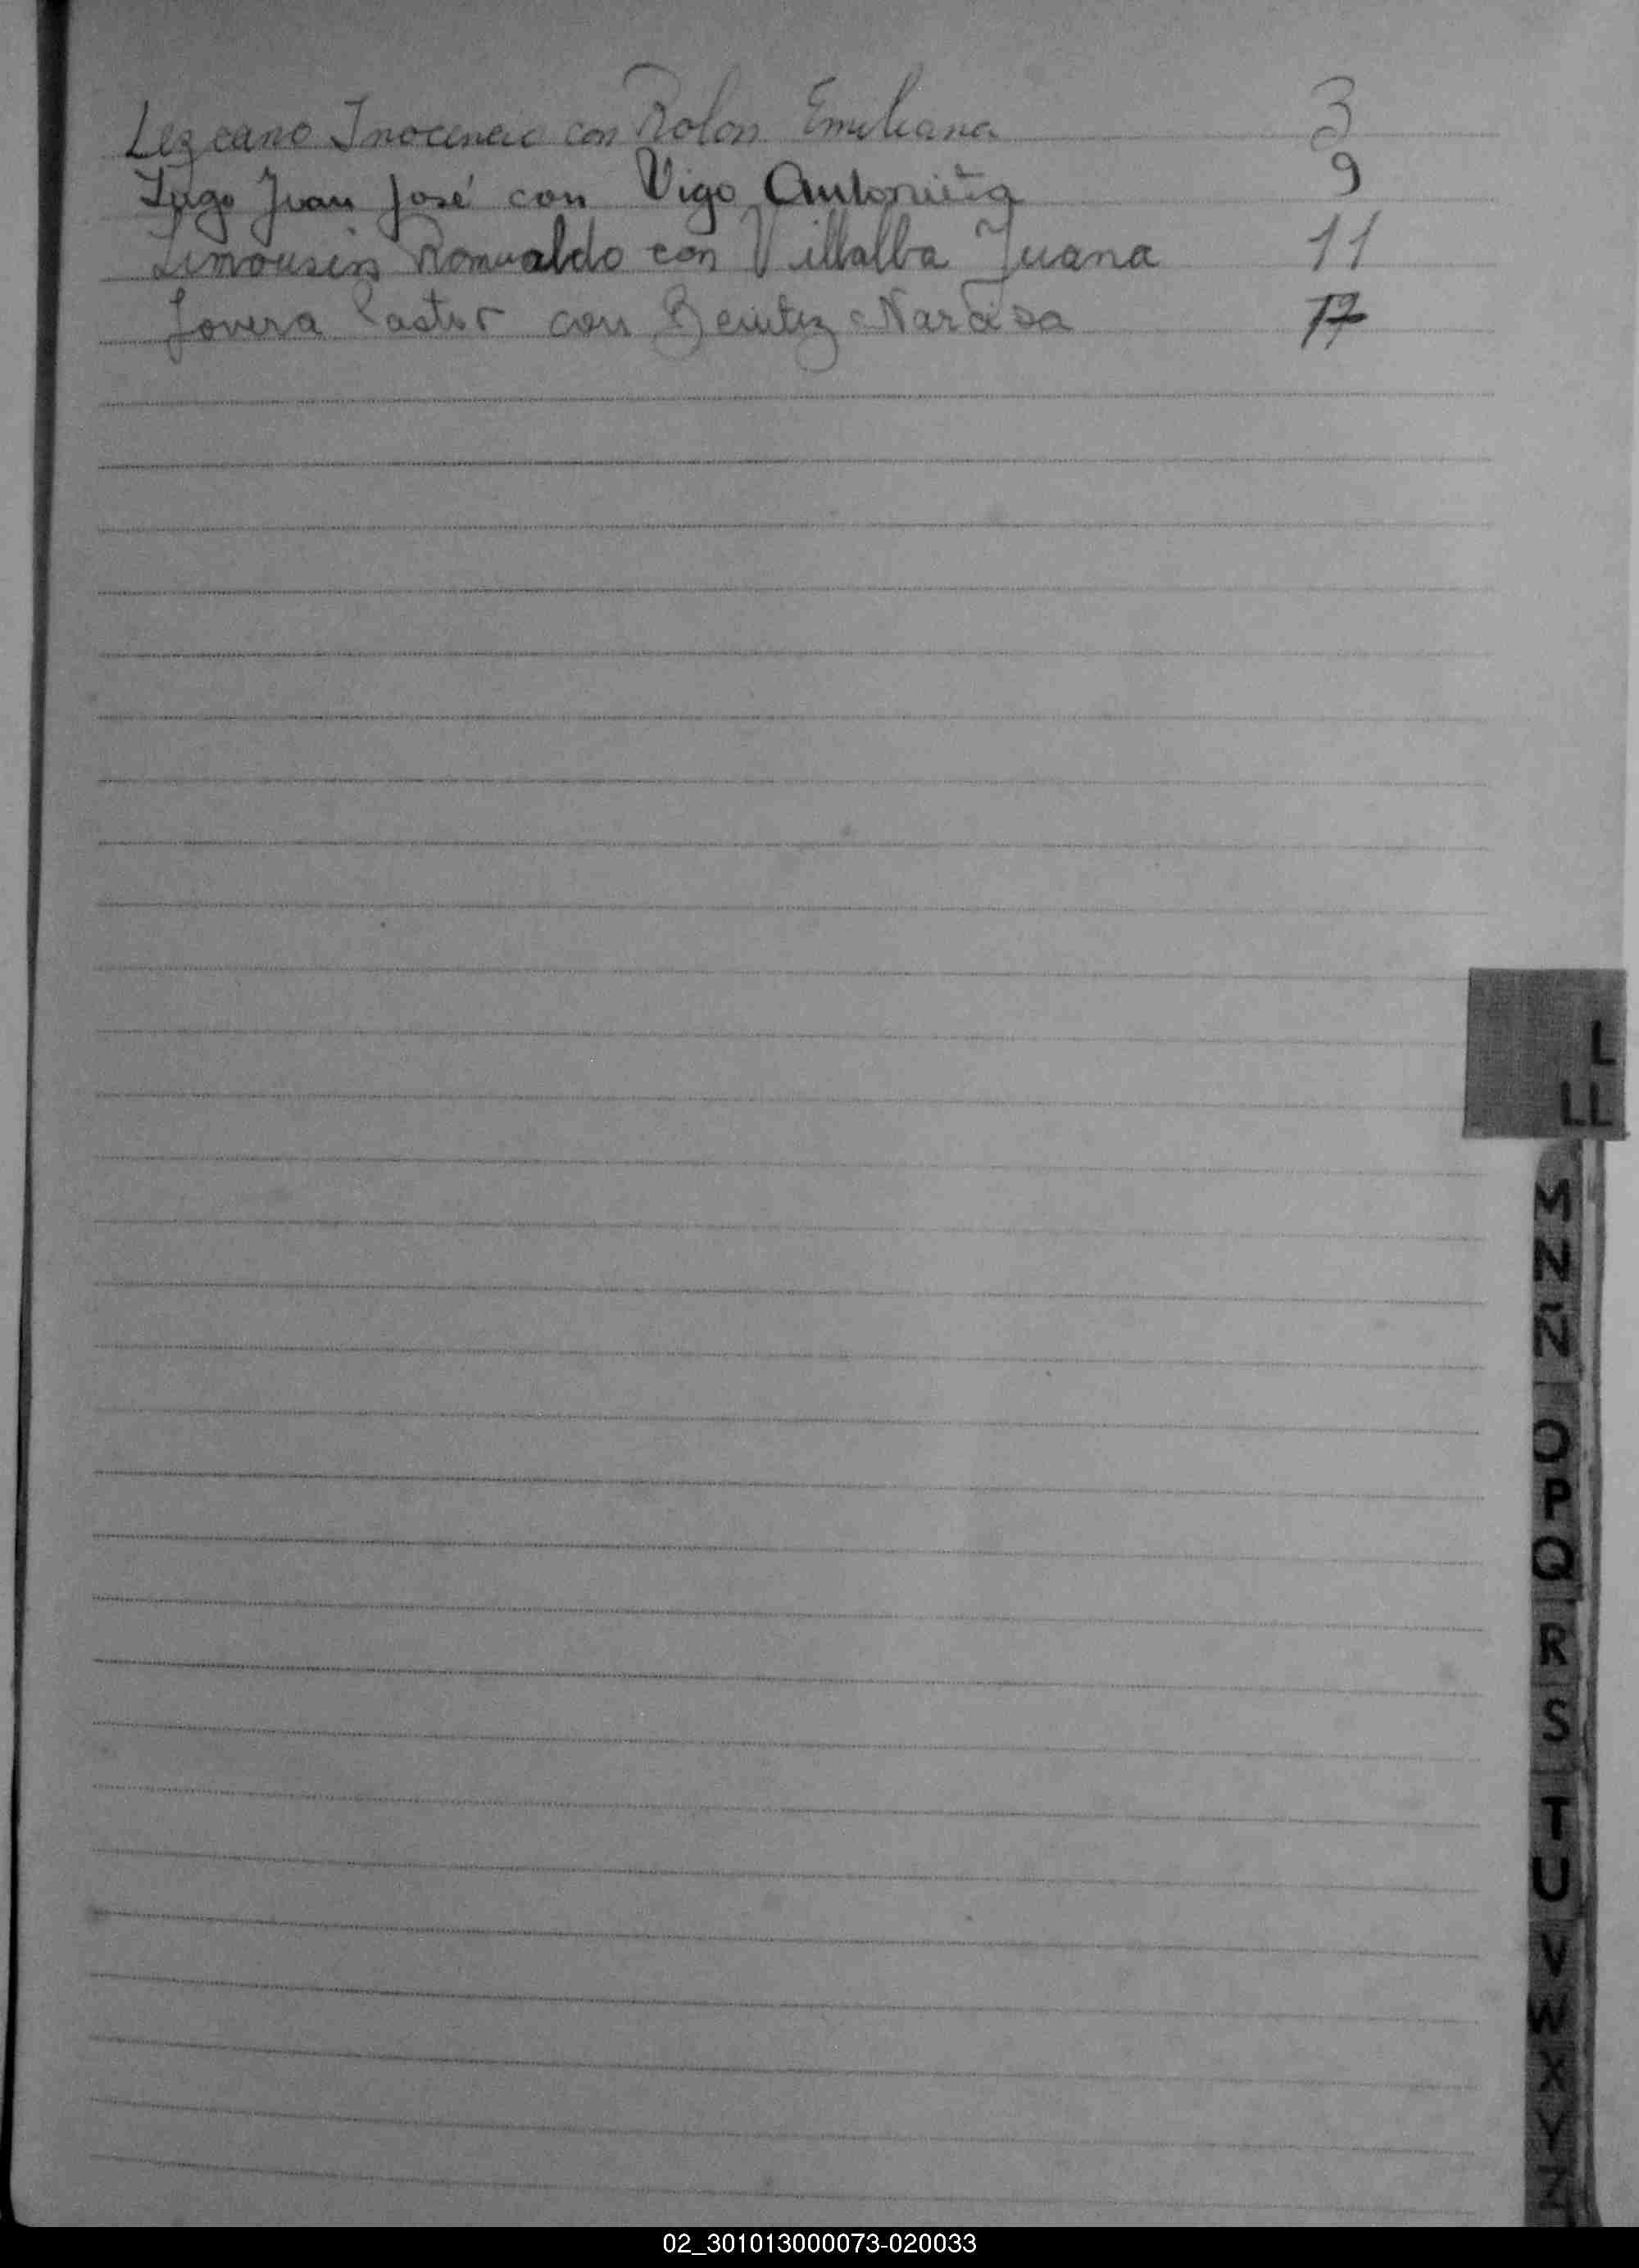 Lezcano Inocencio con Rolon Emiliana 3
Lugo Juan José con Vigo Antoniña 9
Limousin Romualdo con Villalba Juana 11
Lovera Pastor con Benitez Narcisa 17
L
LL
M
N
Ñ
O
P
Q
R
S
T
U
V
W
X
Y
Z
02_301013000073-020033